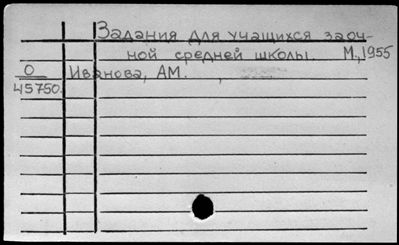 Задания для учащихся заоч-
ной средней школы. М., 1955
О Иванова, А.М.
45750.